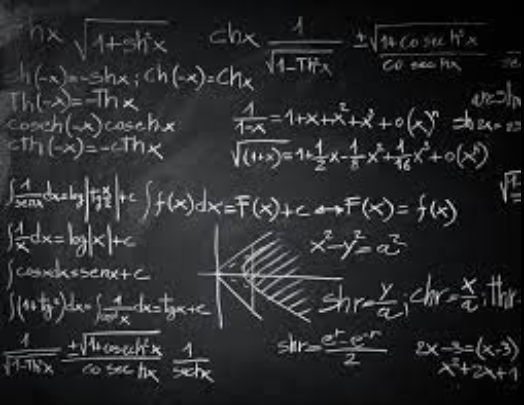 hx √1+sh²x chx 1/√1-Th²x ±√1+cosech²x/cosechx
sh(-x)=-shx; ch(-x)=chx
Th(-x)=-Thx
cosech(-x)cosechx
cth(-x)=-cThx
1/1-x=1+x+x²+x³+o(x)
√(1+x)=1+1/2x-1/8x²+1/16x³+o(x³)
∫1/senx dx=log|tg x/2|+c ∫f(x)dx=F(x)+c↔F(x)=f(x)
∫1/x dx=log|x|+c
x²-y²=a²
∫cosxdx=senx+c
∫(1+tg²)dx=∫1/cos²x dx=tgx+c
shr=y/a; chr=x/a; thr
1/√1-Th²x ±√1+cosech²x/cosechx 1/sechx
shr=eʳ-e⁻ʳ/2
2x-3=(x-3)
x²+2x+1